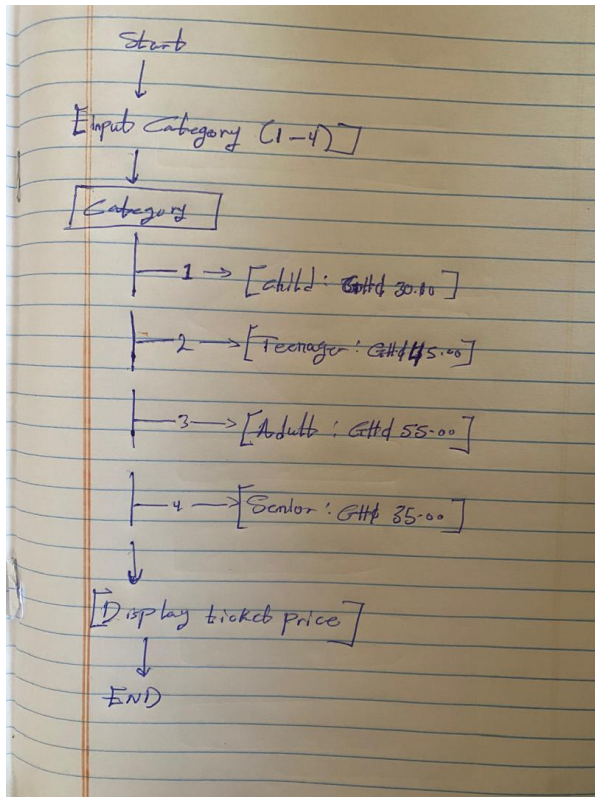 Start
[Input Category (1-4)]
Category
1 → [Child: GH₵ 30.00]
2 → [Teenager: GH₵ 45.00]
3 → [Adult: GH₵ 55.00]
4 → [Senior: GH₵ 35.00]
[Display ticket price]
END